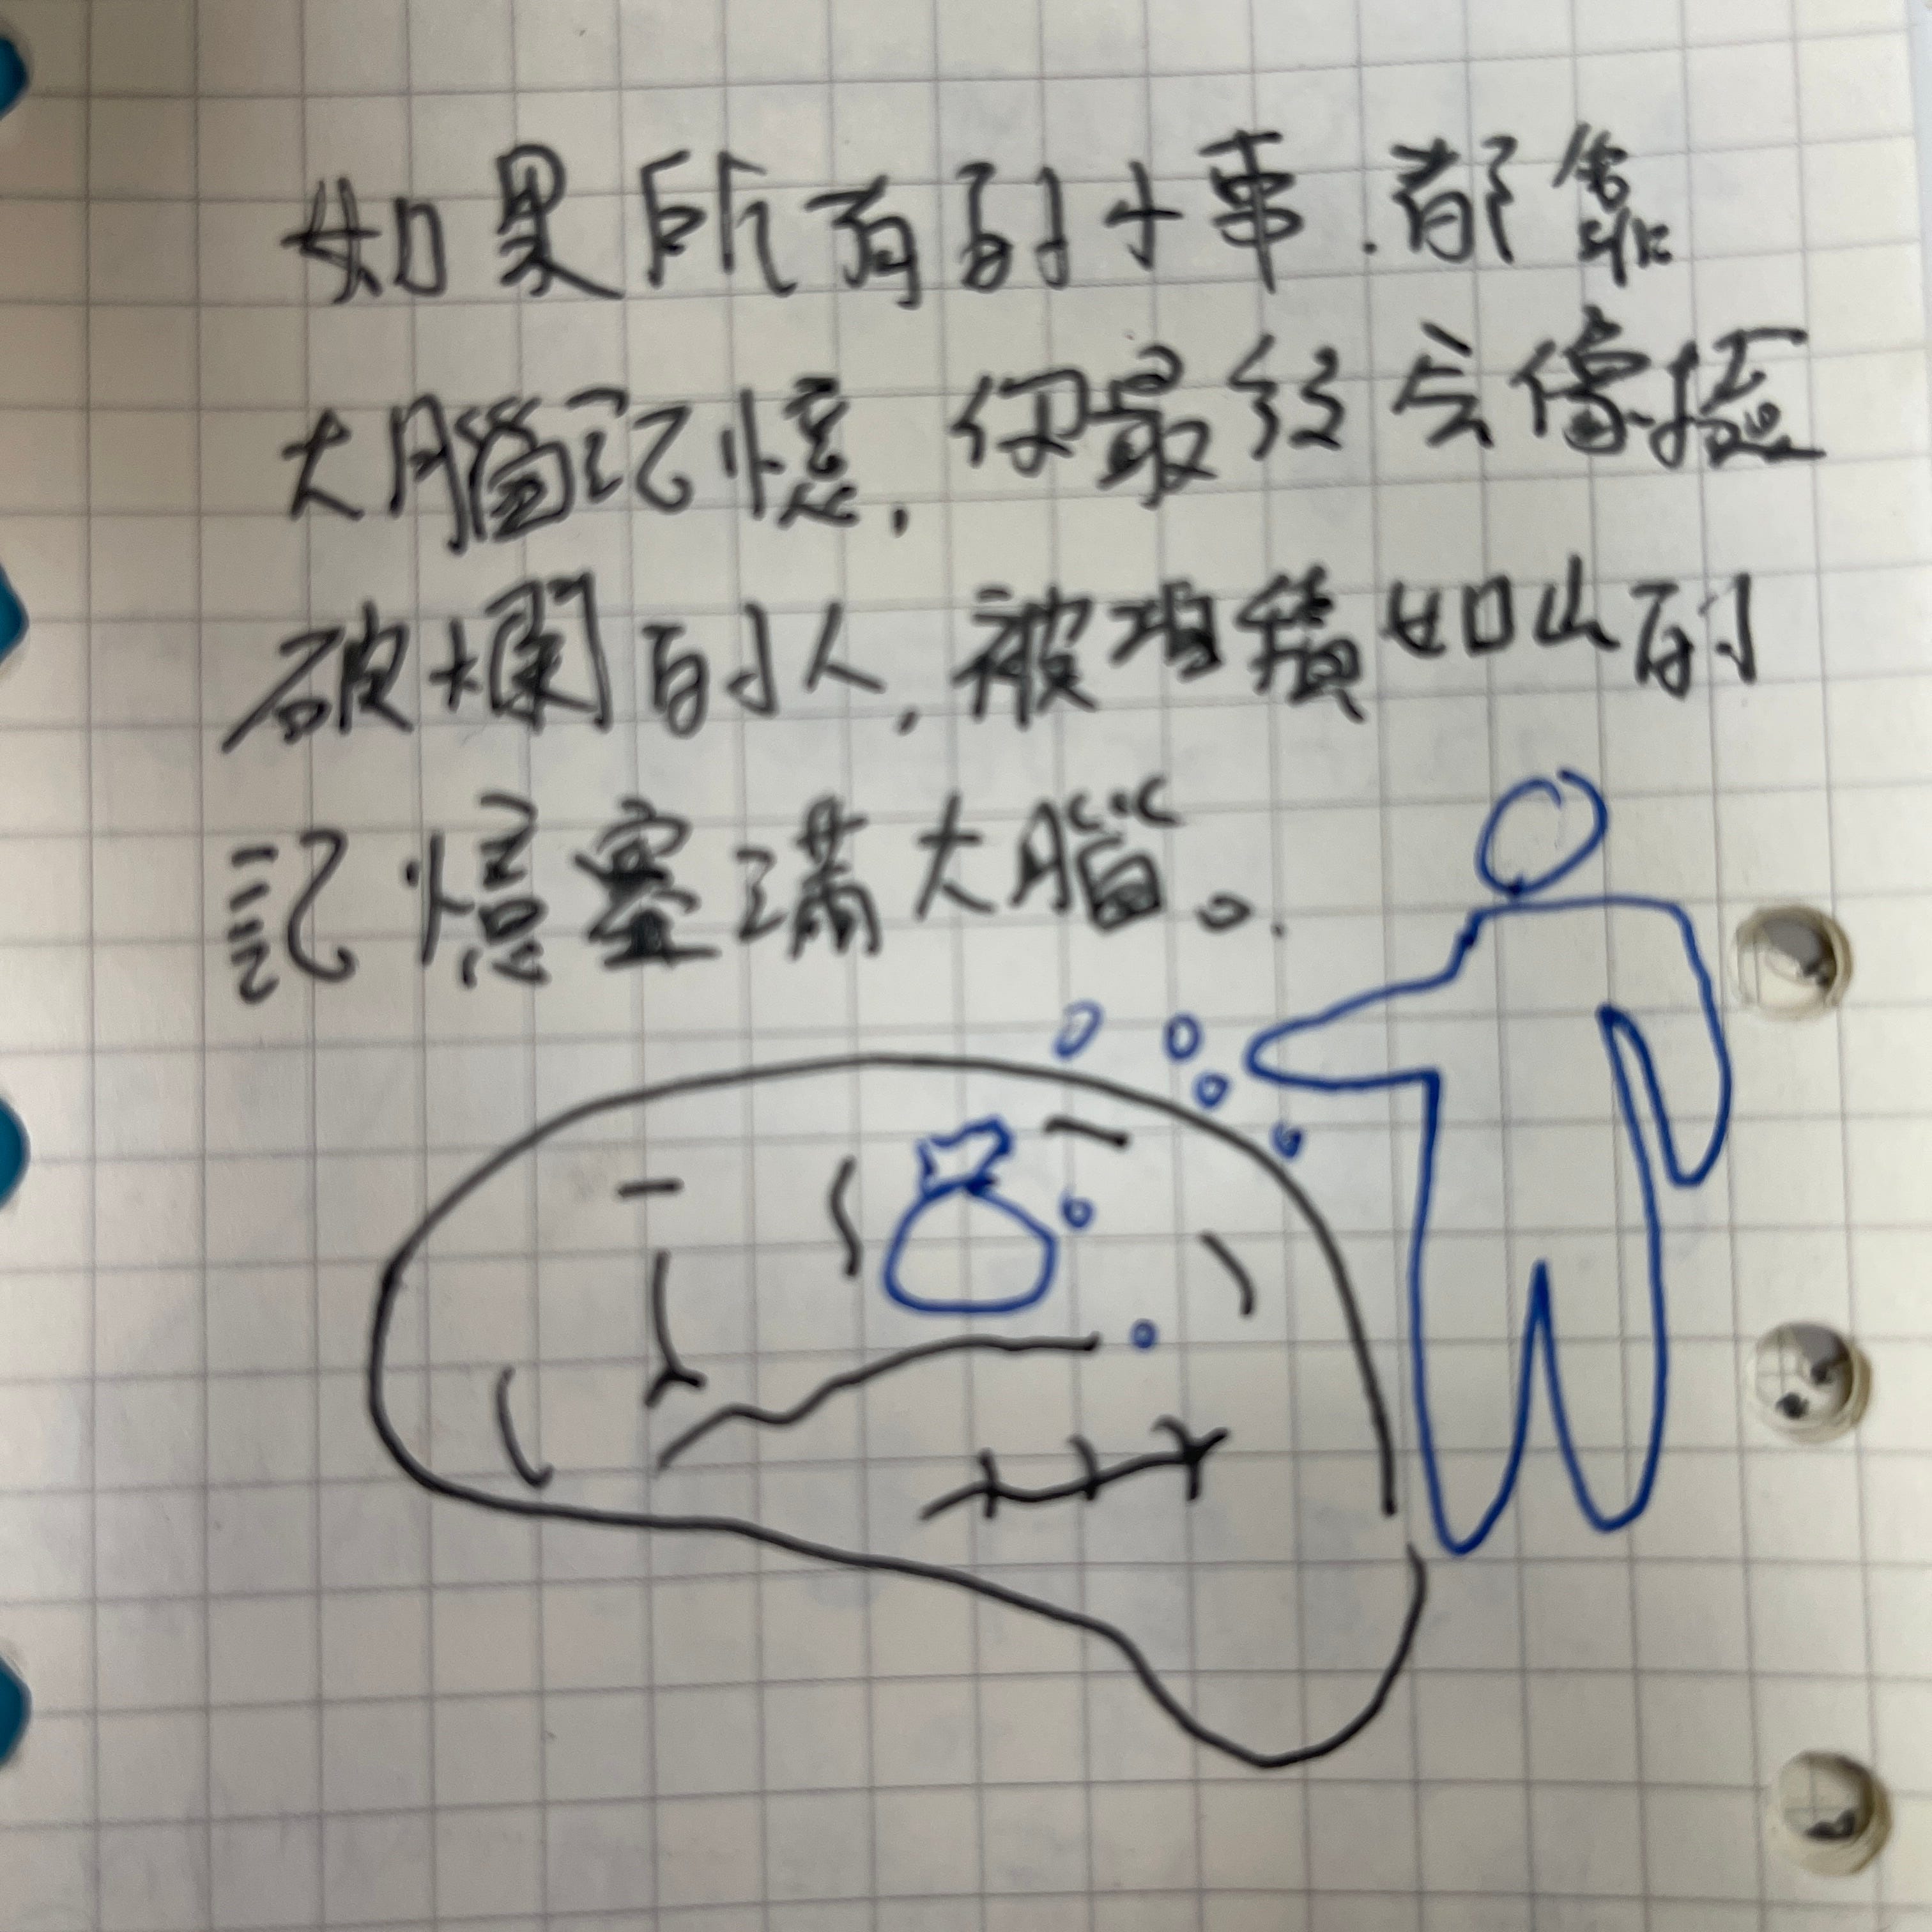 如果所有的小事.都靠
大腦記憶,你最终会像撿
破爛的人,被堆積如山的
記憶塞满大腦。